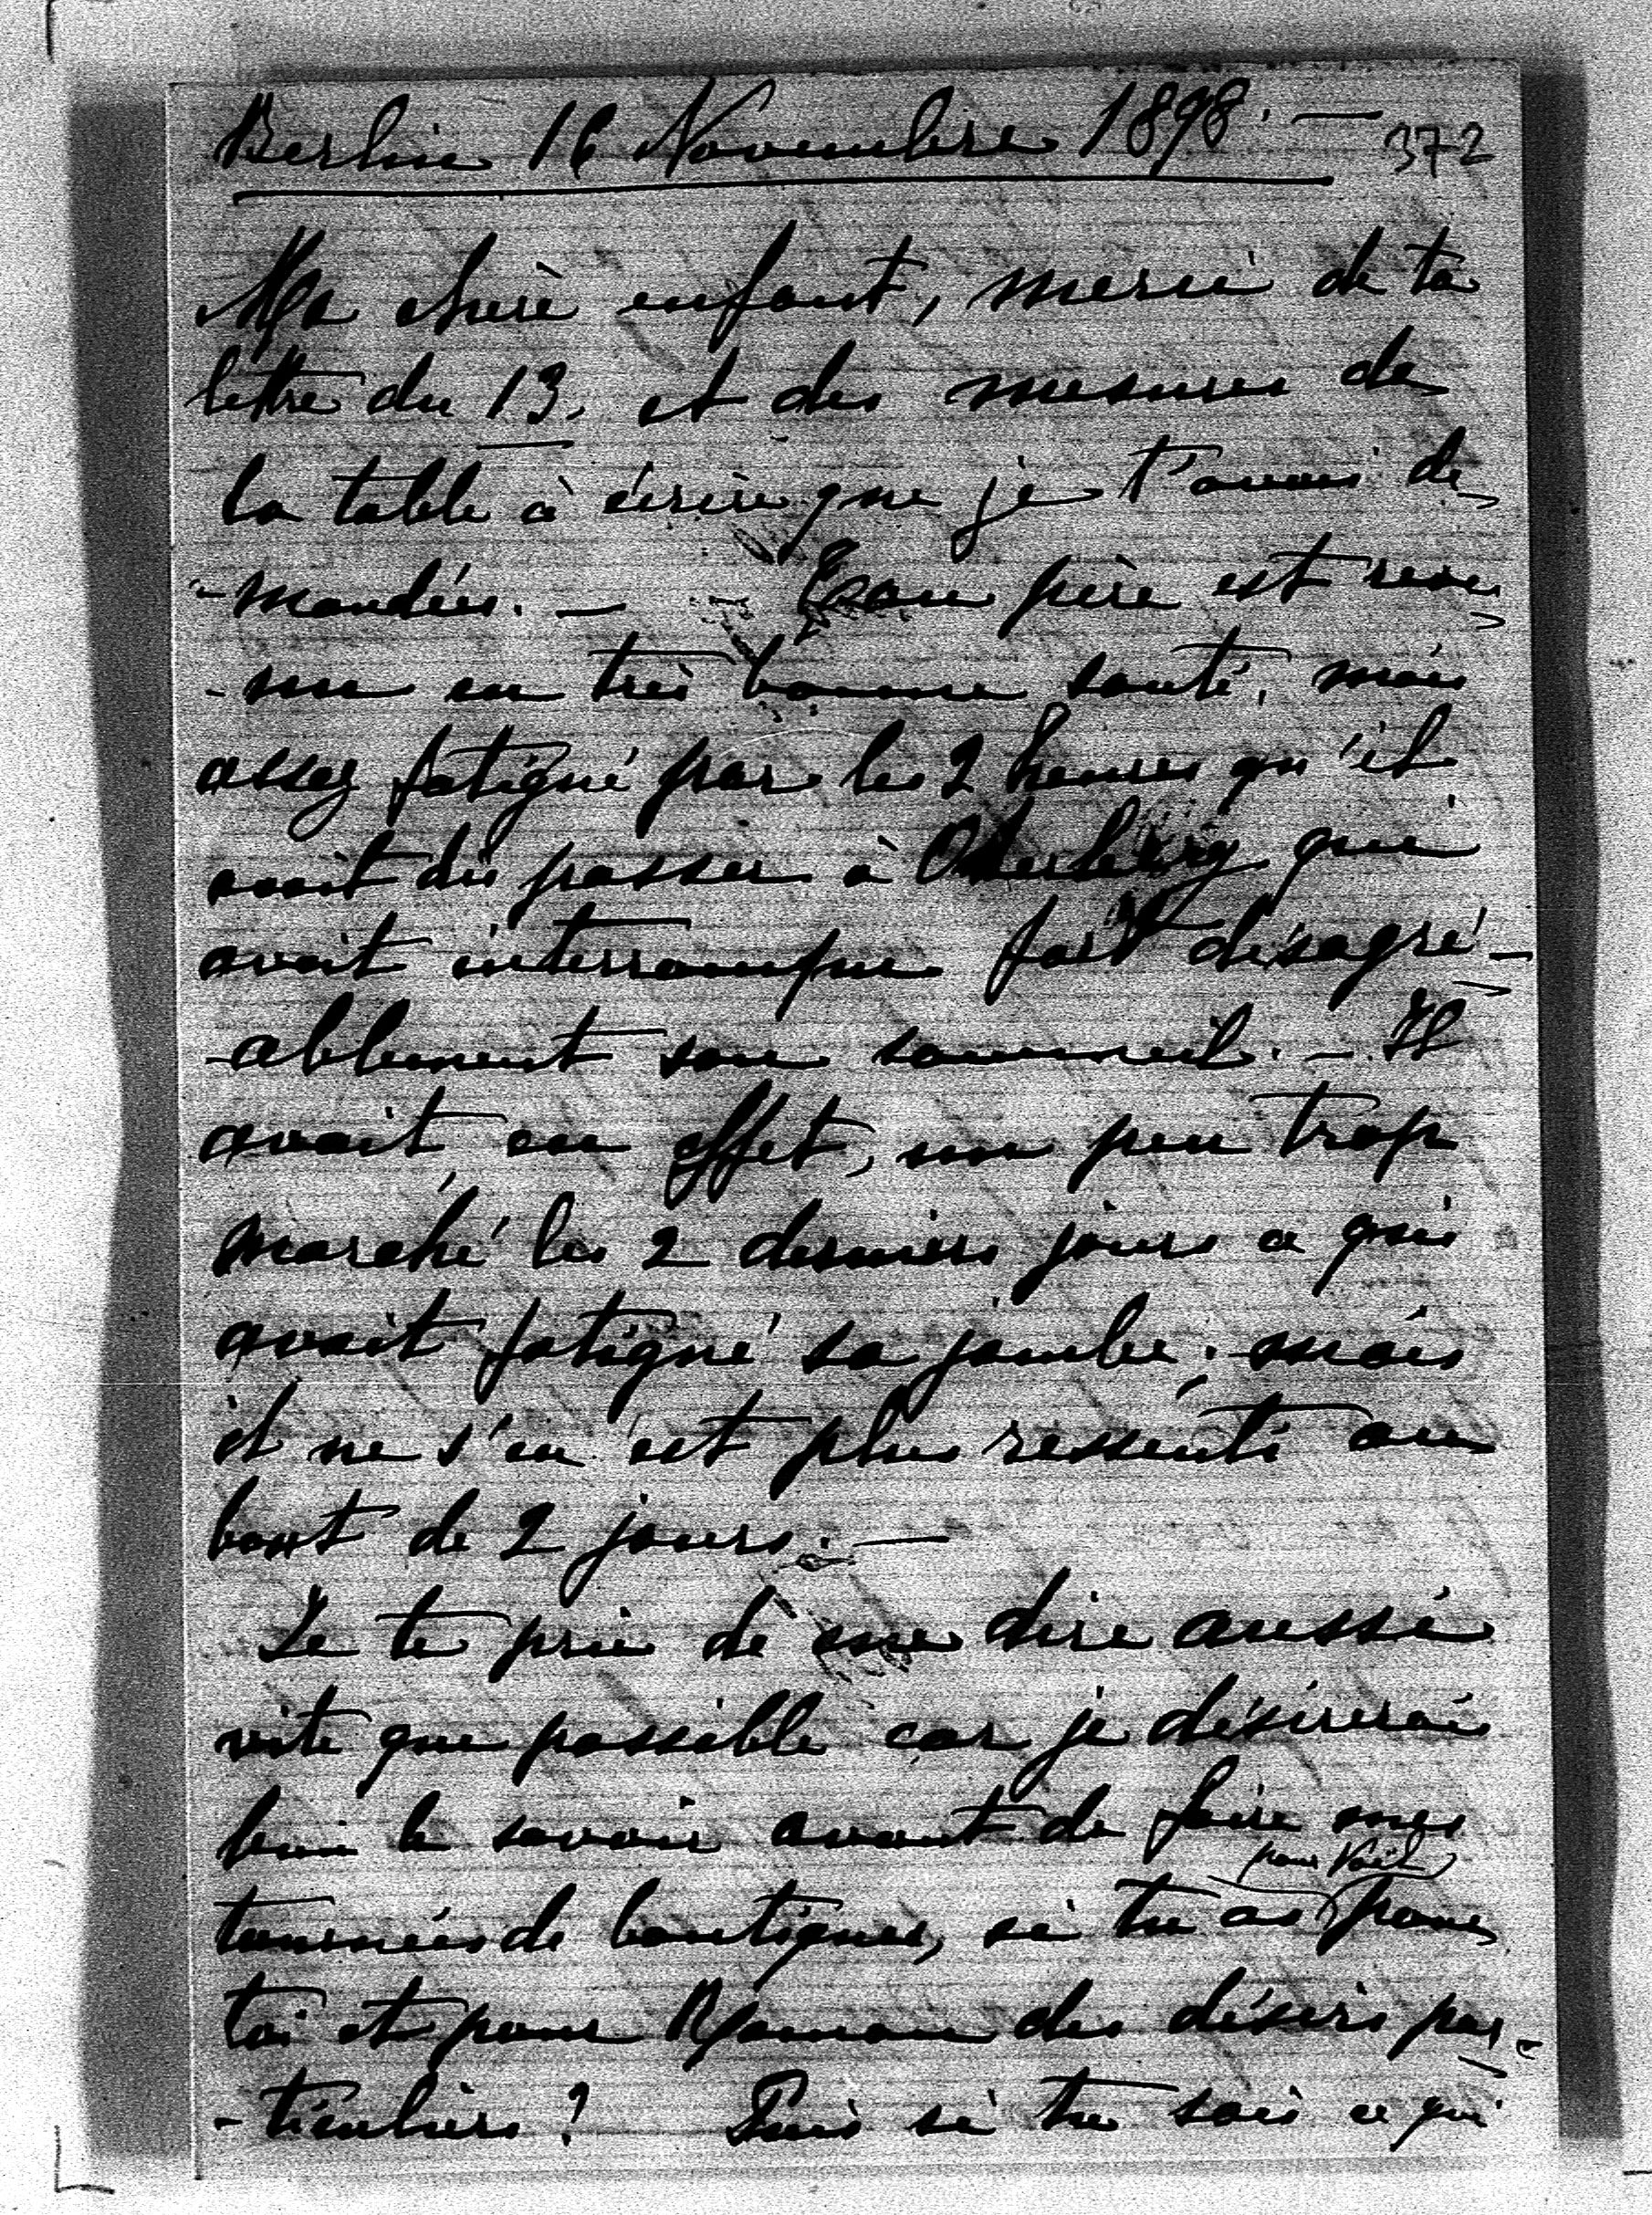 Berlin 16 Novembre 1898. — 372
Ma chère enfant, merci de ta
lettre du 13. et des mesures de
la table à écrire que je t'avais de-
-mandées. — Ton père est reve-
-nu en très bonne santé, mais
assez fatigué par les 2 heures qu'il
avait dû passer à Oderberg qui
avait interrompu fort désagré-
-ablement son sommeil. — Il
avait, en effet, un peu trop
marché les 2 derniers jours ce qui
avait fatigué sa jambe. mais
il ne s'en est plus ressenti au
bout de 2 jours. —
Je te prie de me dire aussi
vite que possible car je désirerais
bien le savoir avant de faire mes
pour Noël
tournées de boutiques, si tu as pour
toi et pour Roman des désirs par-
-ticuliers? Puis si tu sais ce qui